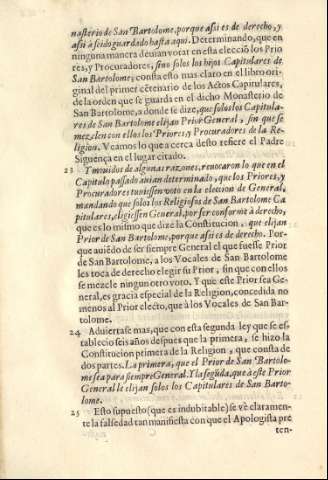 nasterio de San Bartolome, porque assi es de derecho, y
assi à seido guardado hasta aqui. Determinando, que en
ninguna manera deuian votar en esta elecciō los Prio
res, y Procuradores, sino solos los hijos Capitulares de
San Bartolome; consta esto mas claro en el libro ori-
ginal del primer cētenario de los Actos Capitulares,
de la orden que se guarda en el dicho Monasterio de
San Bartolome, a donde se dize, que solos los Capitula-
res de San Bartolome elijan Prior General, sin que se
mezclen con ellos los Priores, y Procuradores de la Re-
ligion. Veamos lo que a cerca desto refiere el Padre
Siguença en el lugar citado.
23 Y mouidos de algunas razones, reuocaron lo que en el
Capitulo passado auian determinado, que los Priores, y
Procuradores tuuiessen voto en la eleccion de General,
mandando que solos los Religiosos de San Bartolome Ca
pitulares, eligiessen General, por ser conforme à derecho,
que es lo mismo que dize la Constitucion, que elijan
Prior de San Bartolome, porque assi es de derecho. Por-
que auiēdo de ser siempre General el que fuesse Prior
de San Bartolome, a los Vocales de San Bartolome
les toca de derecho elegir su Prior, sin que con ellos
se mezcle ningun otro voto. Y que este Prior sea Ge-
neral, es gracia especial de la Religion, concedida no
menos al Prior electo, que à los Vocales de San Bar-
tolome.
24 Aduiertase mas, que con esta segunda ley que se es-
tablecio seis años despues que la primera, se hizo la
Constitucion primera de la Religion, que consta de
dos partes. La primera, que el Prior de San Bartolo-
me sea para siempre General. Y la segūda, que à este Prior
General le elijan solos los Capitulares de San Barto-
lome.
25 Esto supuesto (que es indubitable) se vè claramen-
te la falsedad tan manifiesta con que el Apologista pre
ten-